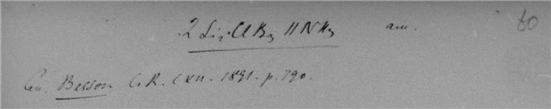 2 Si2 Cl Br3 11 NH3 am. 60
Besson C.R. CXII. 1891. p. 790.